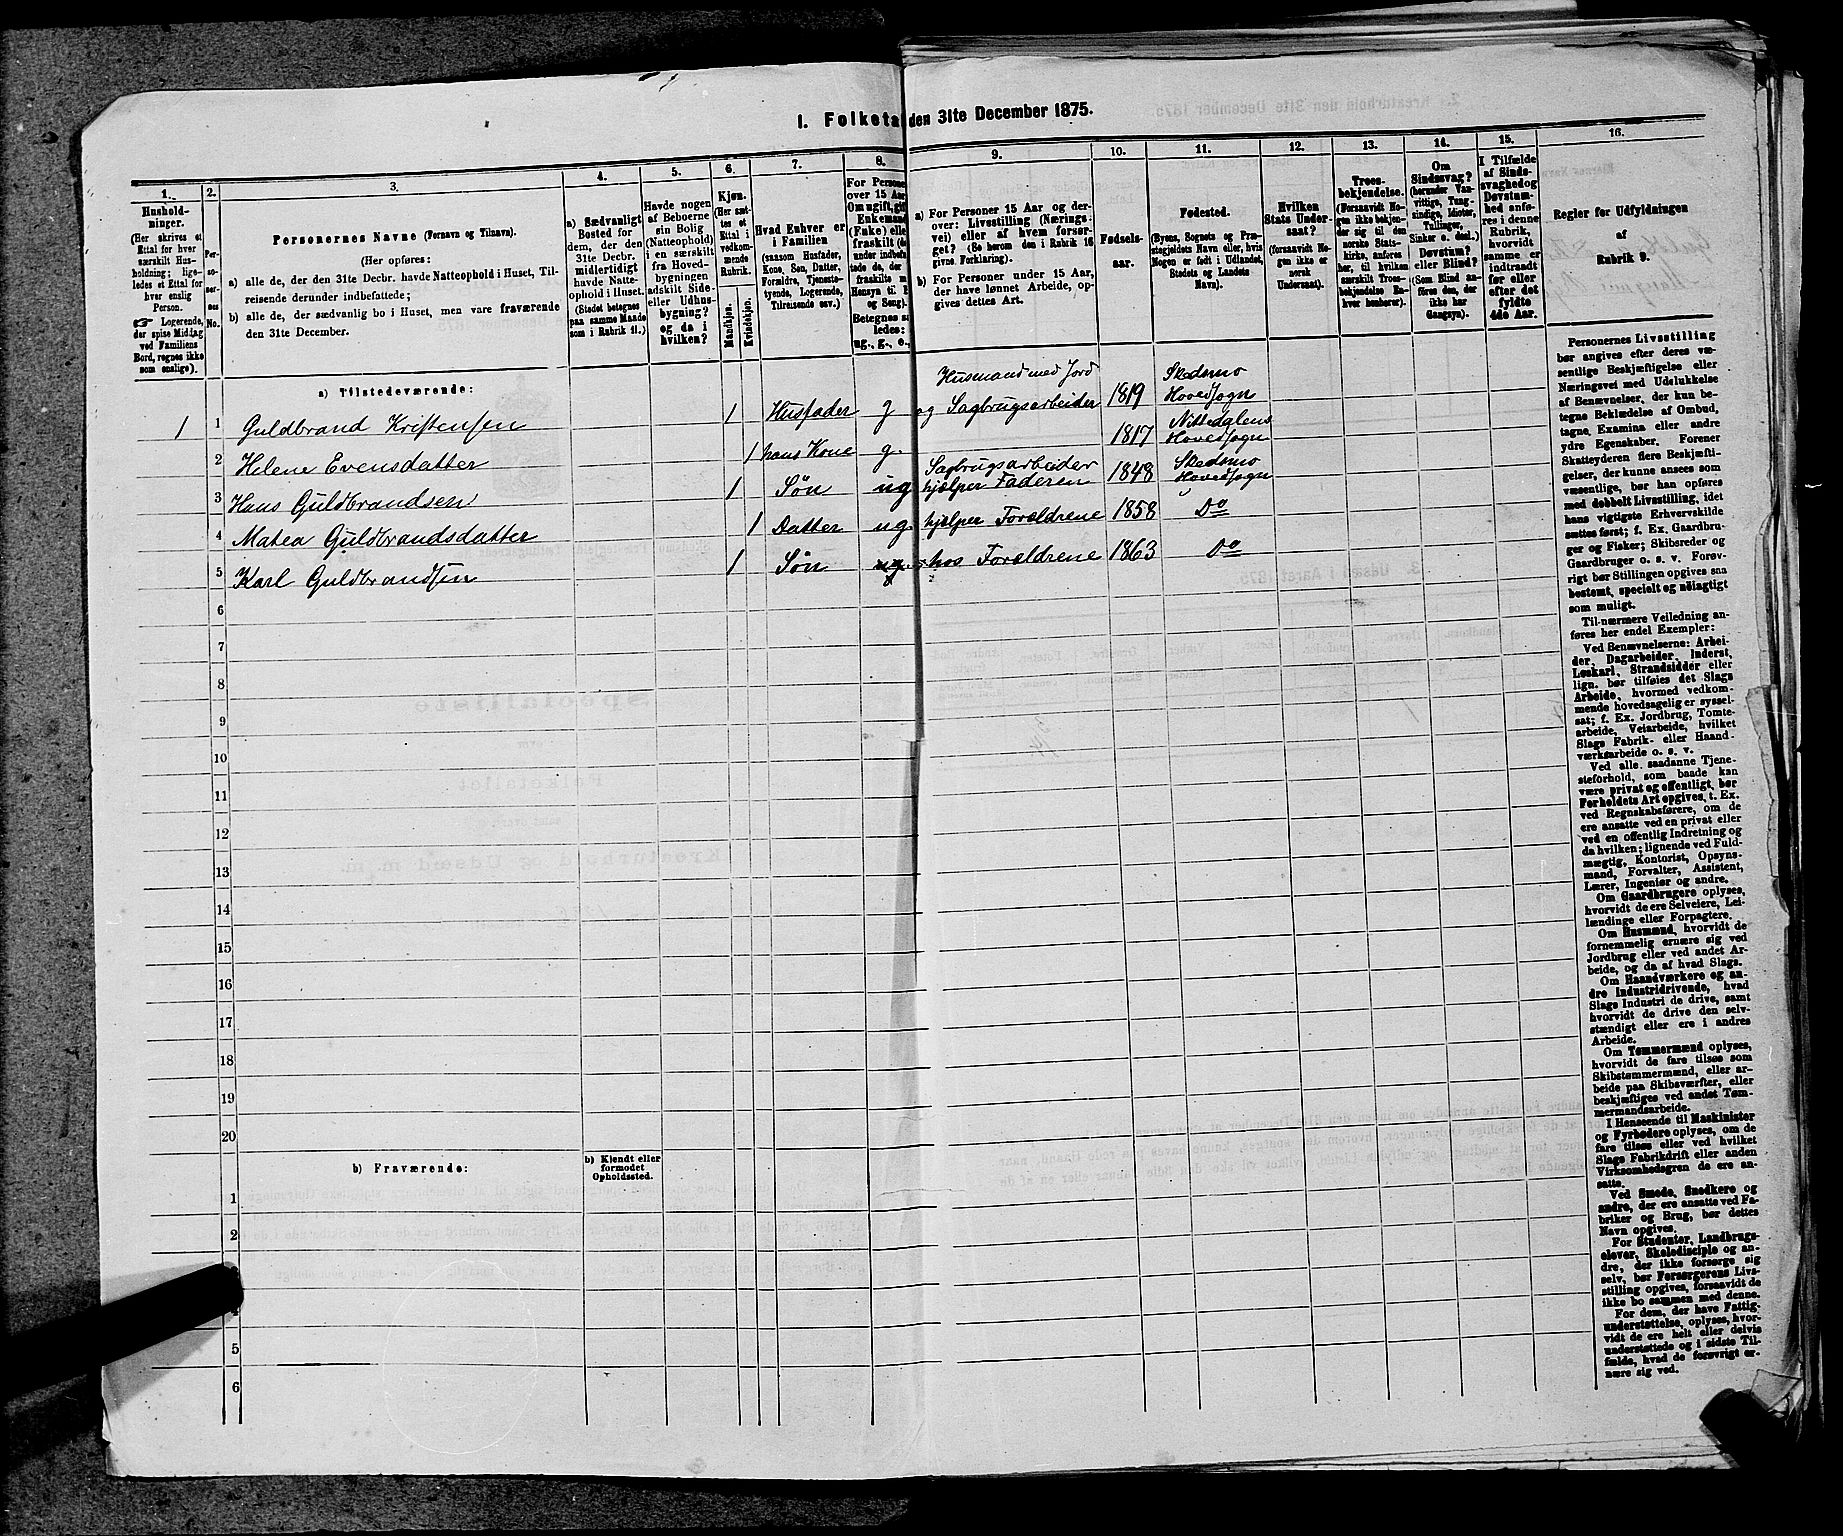 1. Folketal den 31te December 1875.
1.
Hushold-
ninger.
(Her skrives et
Ettal for hver
særskilt Hus-
holdning; lige-
ledes et Ettal for
hver enslig
Person.
☞ Logerende,
der spise Middag
ved Familiens
Bord, regnes ikke
som enslige).
2.
Per-
so-
ner-
nes
No.
3.
Personernes Navne (Fornavn og Tilnavn).
(Her opføres:
a) alle de, der den 31te Decbr. havde Natteophold i Huset, Til-
reisende derunder indbefattede;
b) alle de, der sædvanlig bo i Huset, men vare fraværende
den 31te December.
4.
a) Sædvanligt
Bosted for
dem, der den
31te Decbr.
midlertidigt
havde Natte-
ophold i Huset.
(Stedet betegnes
paa samme Maade
som i Rubrik 11.)
5.
Havde nogen
af Beboerne
sin Bolig
(Natteophold)
i en særskilt
fra Hoved-
bygningen
adskilt Side-
eller Udhus-
bygning?
og da i
hvilken?
6.
Kjøn.
(Her sæt-
tes et
Ettal i
vedkom-
mende
Rubrik.
Mandkjøn.
Kvindekjøn.
7.
Hvad Enhver er
i Familien
(saasom Husfader,
Kone, Søn, Datter,
Forældre, Tjeneste-
tyende, Logerende,
Tilreisende osv.)
8.
For Persone
over 15 Aar
Om ugift, gif
Enkemand
(Enke) eller
fraskilt (de
under indbefat-
tede de, der
fraskilte m
Hensyn til B
og Seng).
Betegnes sa
ledes:
ug., g., e.,
9.
a) For Personer 15 Aar og der-
over: Livsstilling (Nærings-
vei) eller af hvem forsør-
get? (Se herom den i Rubrik 16
givne Forklaring).
b) For Personer under 15 Aar,
der have lønnet Arbeide, op-
gives dettes Art.
10.
Fødsels-
aar.
11.
Fødested.
(Byens, Sognets og Præ-
stegjeldets Navn eller, hvis
Nogen er født i Udlandet,
Stedets og Landets
Navn).
12.
Hvilken
Stats Under-
saat?
(forsaavidt No-
gen ikke er
norsk
Undersaat).
13.
Troes-
bekjendelse.
(Forsaavidt No-
gen ikke bekjen-
der sig til den
norske Stats-
kirke, anføres
her, til hvilken
særskilt Troes-
bekjendelse En-
hver henhører).
14.
Om
Sindssvag?
(herunder Van-
vittige, Tung-
sindige, Idioter,
Tullinger,
Sinker o. desl.)
Døvstum?
eller Blind?
(Som Blind an-
føres den, der
ikke har
Gangsyn).
15.
I Tilfælde
af Sinds-
svaghed og
Døvstum-
hed anfø-
res i denne
Rubrik,
hvorvidt
samme er
indtraadt
før eller
efter det
fyldte
4de Aar.
16.
Regler for Udfyldningen
af
Rubrik 9.
a) Tilstedeværende:
1 1 Guldbrand Kristensen 1 Husfader g Husmand med Jord og Sagbrugsarbeider 1819 Skedsmo Hovedsogn
2 Helene Evensdatter 1 hans Kone g. 1817 Nittedalens Hovedsogn
3 Hans Guldbrandsen 1 Søn ug Sagbrugsarbeider hjelper Faderen 1848 Skedsmo Hovedsogn
4 Matea Guldbrandsdatter 1 Datter ug hjelper Forældrene 1858 Do
5 Karl Guldbrandsen 1 Søn ug hos Forældrene 1863 Do
6
7
8
9
10
11
12
13
14
15
16
17
18
19
20
b) Fraværende:
b) Kjendt eller
formodet
Opholdssted.
1
2
4
5
6
Personernes Livsstilling
bør angives efter deres væ-
sentlige Beskjæftigelse eller
Næringsvei med Udelukkelse
af Benævnelser, der kun be-
tegne Beklædelse af Ombud,
tagne Examina eller andre
ydre Egenskaber. Forener
Skatteyderen flere Beskjæfti-
gelser, der kunne ansees som
væsentlige, bør han opføres
med dobbelt Livsstilling, idet
hans vigtigste Erhvervskilde
sættes først; f. Ex. Gaardbru-
ger og Fisker; Skibsreder og
Gaardbruger o. s. v. Forøv-
rigt bør Stillingen opgives saa
bestemt, specielt og nøiagtigt
som muligt.
Til nærmere Veiledning an-
føres her endel Exempler:
Ved Benævnelserne: Arbei-
der, Dagarbeider, Inderst,
Løskarl, Strandsidder eller
lign. bør tilføies det Slags
Arbeide, hvormed vedkom-
mende hovedsagelig er syssel-
sat; f. Ex. Jordbrug, Tomte-
arbeide, Veiarbeide, hvilket
Slags Fabrik- eller Haand-
værksarbeide o. s. v.
Ved alle saadanne Tjene-
steforhold, som baade kan
være privat og offentligt, bør
Forholdets Art opgives, t. Ex.
ved Regnskabsførere, om de
ere ansatte ved en privat eller
ved en offentlig Indretning og
da hvilken; lignende ved Fuld-
mægtig, Kontorist, Opsyns-
mand, Forvalter, Assistent,
Lærer, Ingeniør og andre.
Om Gaardbrugere oplyses,
hvorvidt de ere Selveiere, Lei-
lændinge eller Forpagtere.
Om Husmænd, hvorvidt de
fornemmelig ernære sig ved
Jordbrug eller ved andet Ar-
beide, og da af hvad Slags.
Om Haandværkere og an-
dre Industridrivende, hvad
Slags Industri de drive, samt
hvorvidt de drive den selv-
stændigt eller ere i andres
Arbeide.
Om Tømmermænd oplyses,
hvorvidt de fare tilsøs som
Skibstømmermænd, eller ar-
beide paa Skibsværfter, eller
beskjæftiges ved andet Tøm-
mermandsarbeide.
I Henseende til Maskinister
og Fyrbødere oplyses, om de
fare tilsøs eller ved hvilket
Slags Fabrikdrift eller anden
Virksomhedsgren de ere an-
satte.
Ved Smede, Snedkere og
andre, der ere ansatte ved Fa-
briker og Brug, bør dettes
Navn opgives.
For Studenter, Landbrugs-
elever, Skoledisciple og an-
dre, der ikke forsørge sig
selv, bør Forsørgerens Livs-
stilling opgives, forsaavidt de
ikke bo sammen med denne.
For dem, der have Fattig-
understøttelse, oplyses, hvor-
vidt de ere helt eller delvis
understøttede og i sidste Til-
fælde, hvad de forøvrigt er-
nære sig ved.